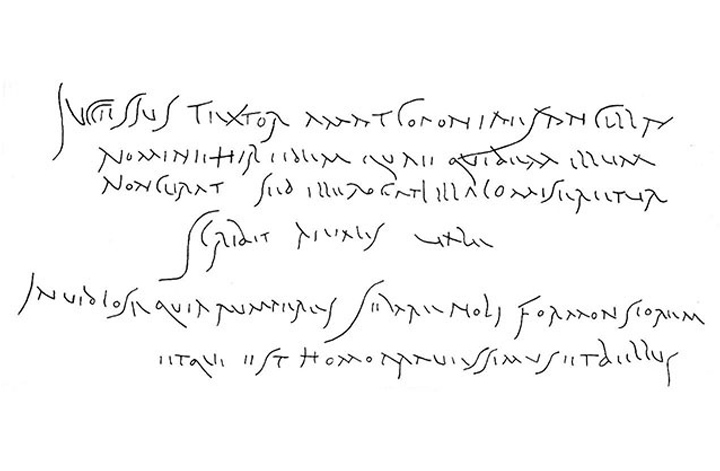 Successus textor amat coponiaes ancilla
nomine Hiredem quae quidem illum
non curat sed ille rogat illa comiseretur
scribit rivalis vale
Invidiose quia rumperes sedare noli formonsiorem
et qui est homo pravessimus et bellus